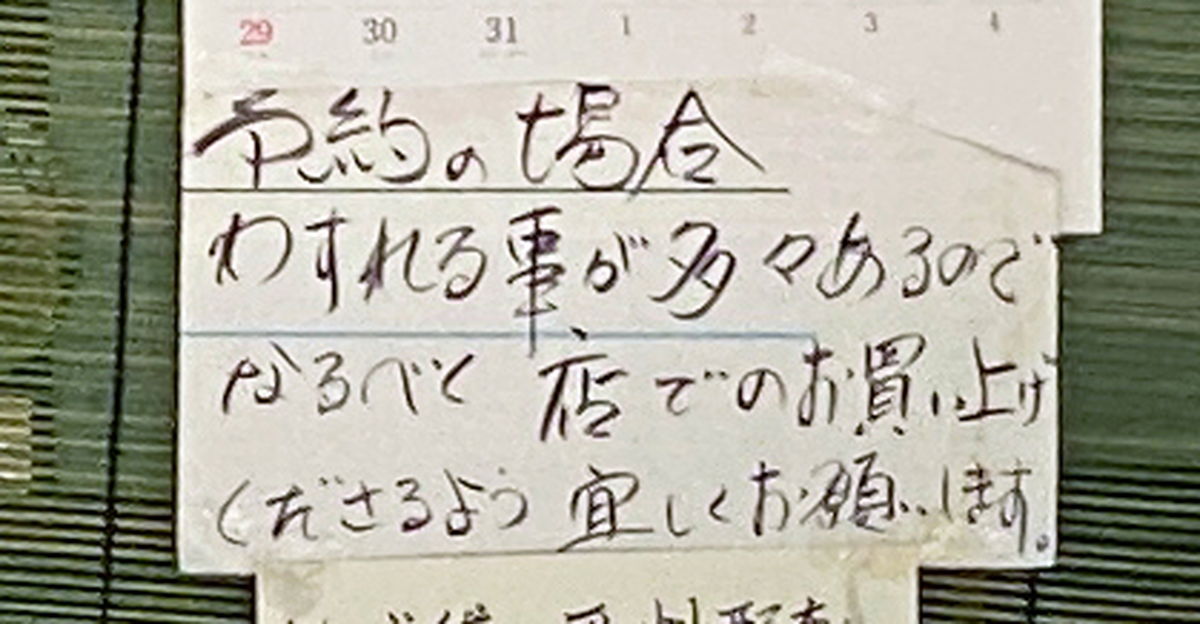 29 30 31 1 2 3 4
予約の場合
わすれる事が多々あるので
なるべく店でのお買い上げ
くださるよう宜しくお願いします。